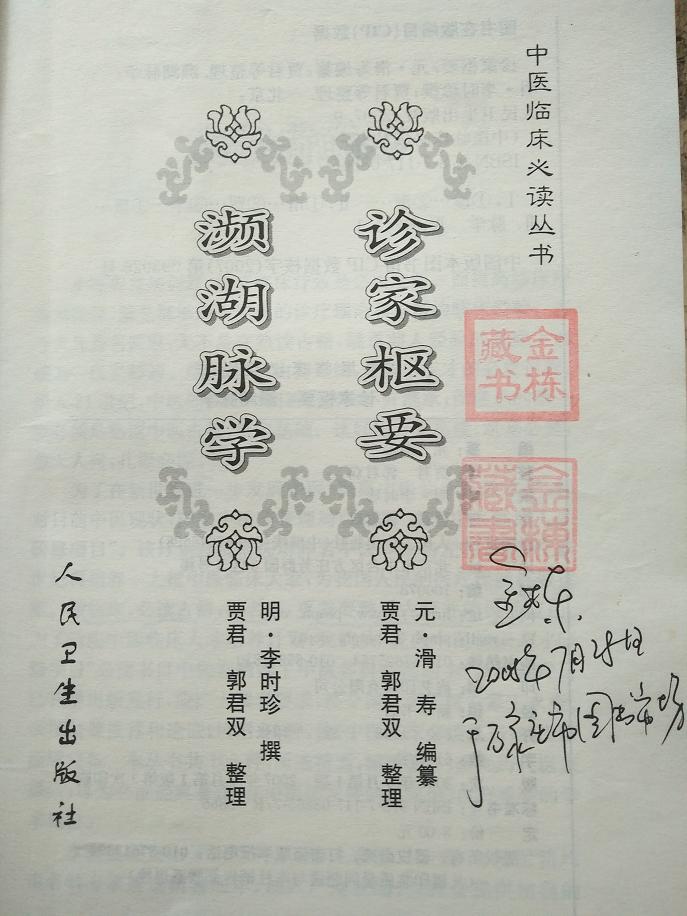 中医临床必读丛书
诊家枢要
元·滑 寿 编纂
贾君 郭君双 整理
濒湖脉学
明·李时珍 撰
贾君 郭君双 整理
人民卫生出版社
金栋
藏书
金栋
藏书
金栋